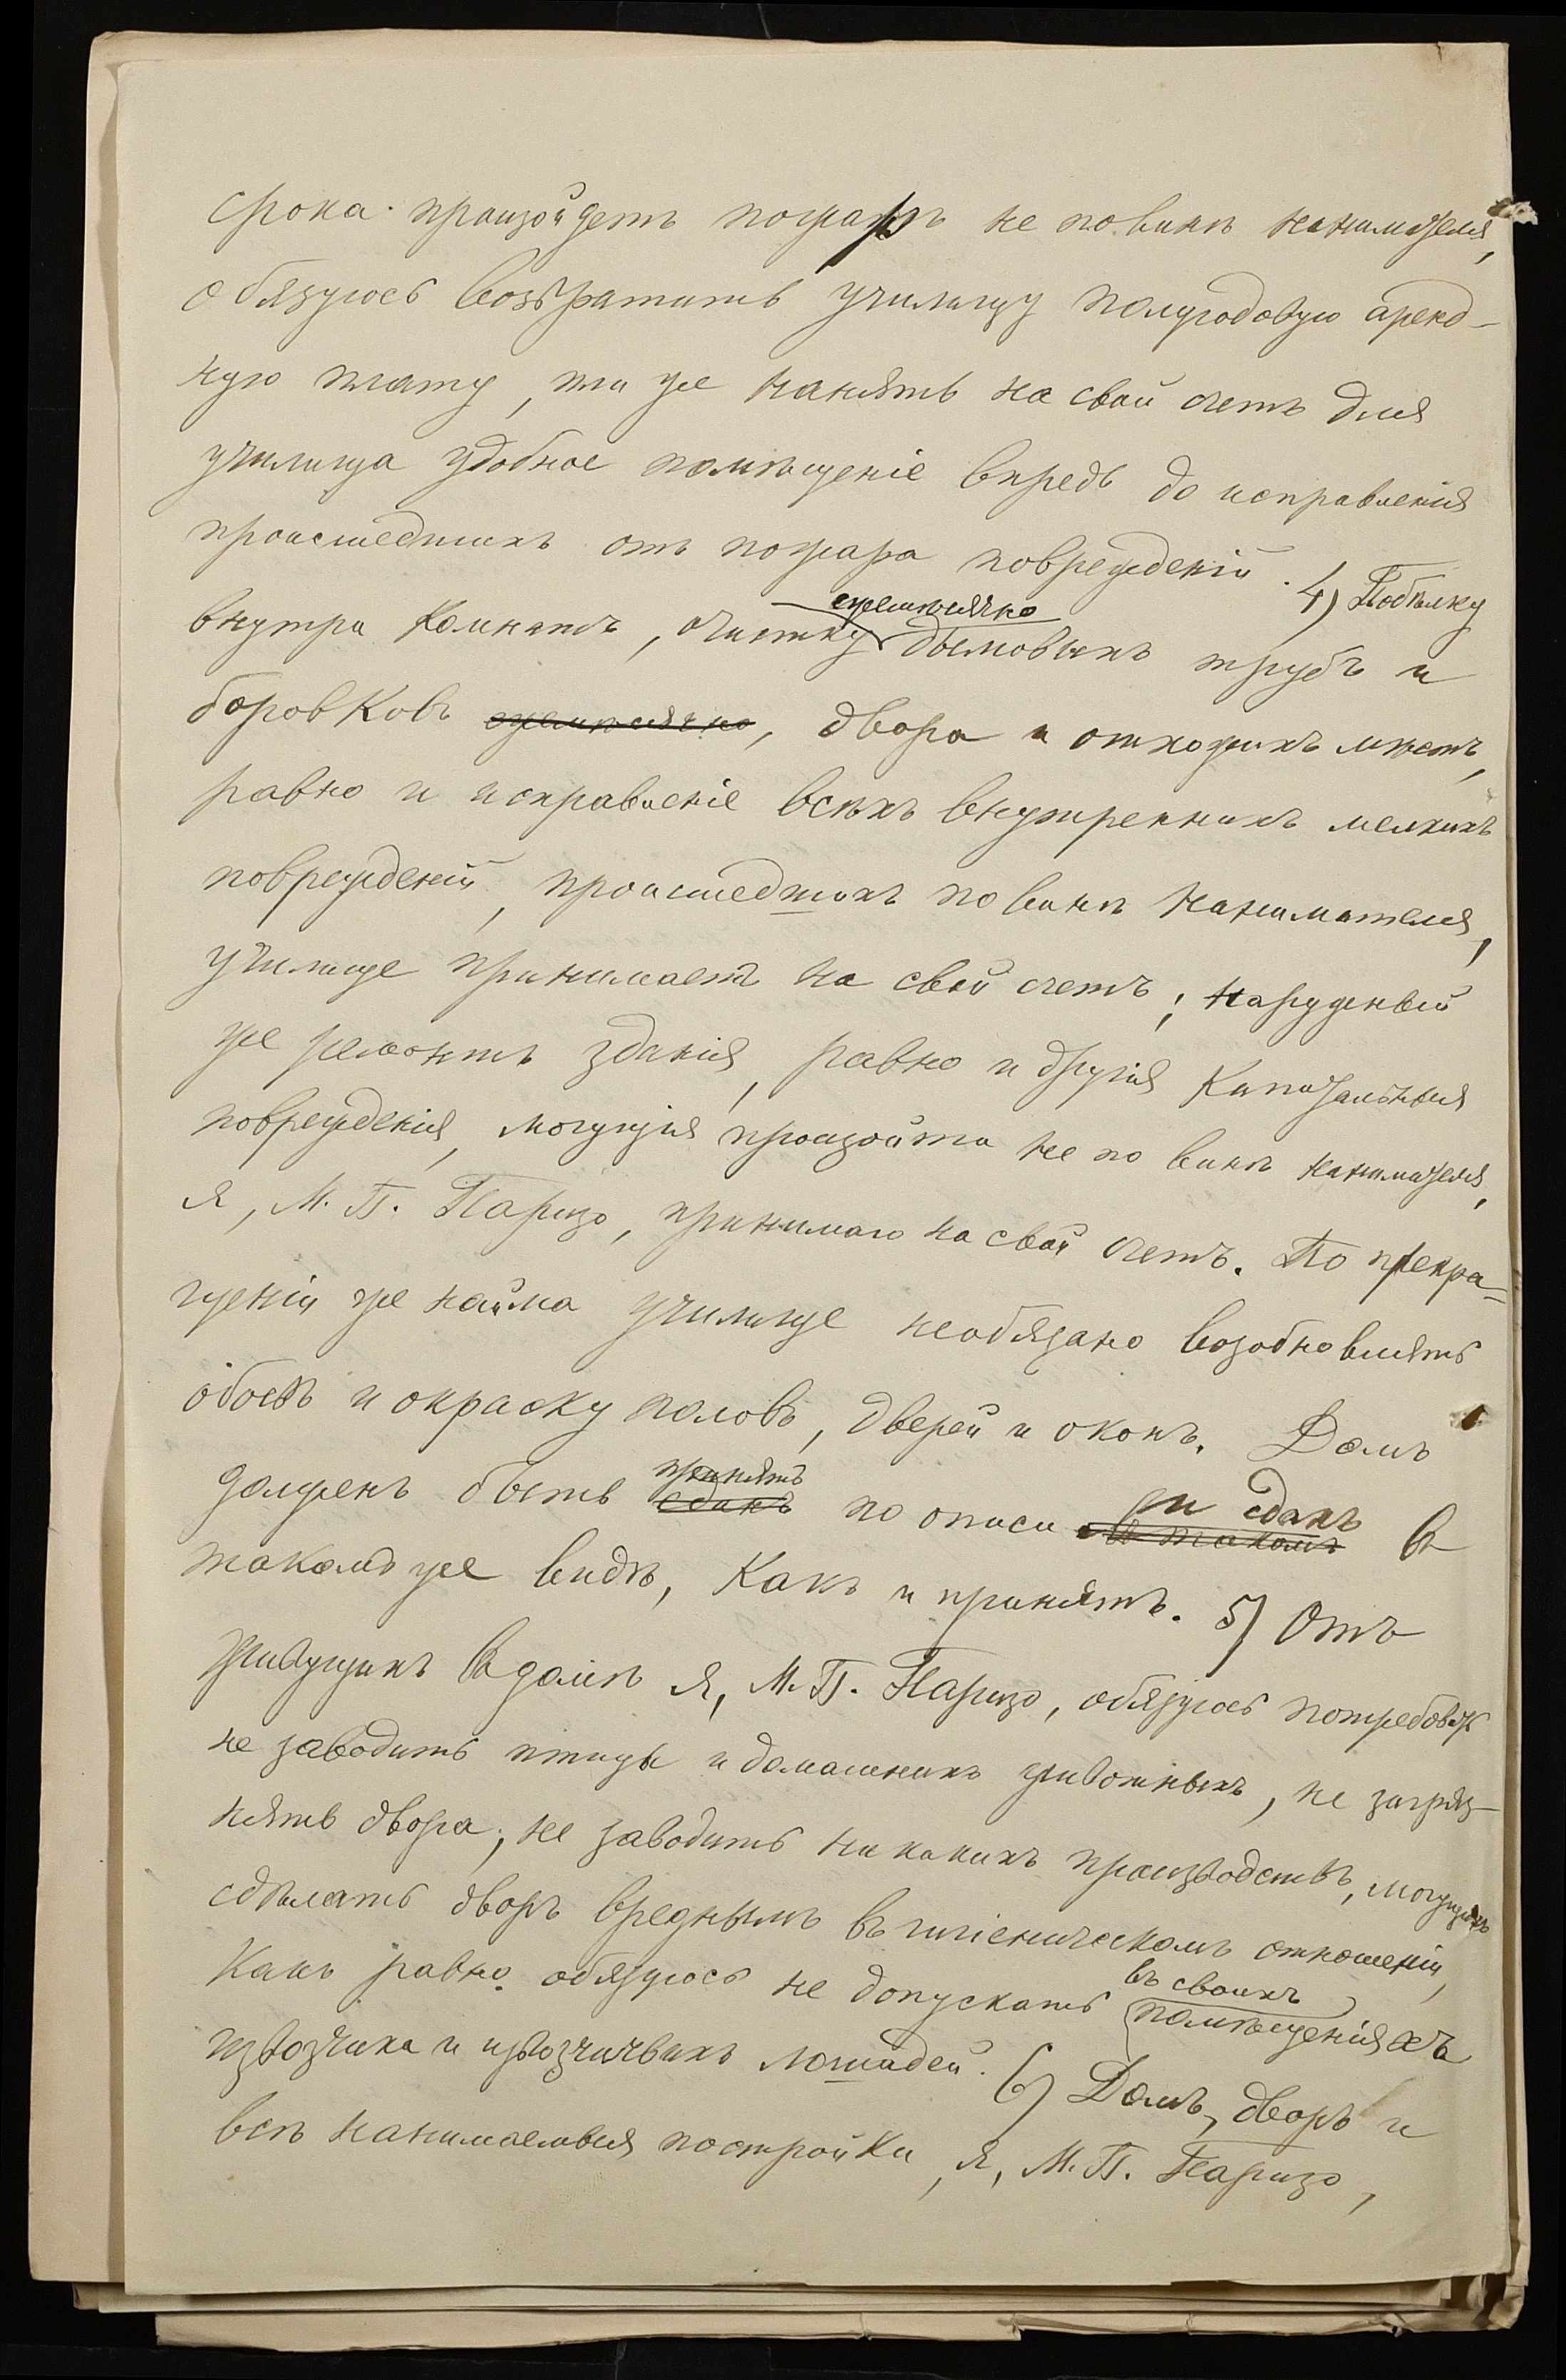 срока произойдетъ пожаръ не по винѣ нанимателя,
обязуюсь возвратить училищу полугодовую аренд-
ную плату, или же нанять на свой счетъ для
училища удобное помѣщеніе впредь до исправленія
происшедшихъ отъ пожара поврежденій. 4) Побѣлку
ежемѣсячно
внутри комнатъ, очистку дымовыхъ трубъ и
боровковъ ежемѣсячно, двора и отхожихъ мѣстъ,
равно и исправленіе всѣхъ внутреннихъ мелкихъ
поврежденій, происшедшихъ по винѣ нанимателя,
училище принимаетъ на свой счетъ; наружный
же ремонтъ зданія, равно и другія капитальныя
поврежденія, могущія произойти не по винѣ нанимателя,
я, М. П. Паризо, принимаю на свой счетъ. По прекра-
щеніи же найма училище необязано возобновлять
обоевъ и окраску половъ, дверей и оконъ. Домъ
принятъ и сданъ
долженъ быть сданъ по описи въ такомъ въ
такомъ же видѣ, какъ и принятъ. 5) Отъ
живущихъ въ домѣ я, М. П. Паризо, обязуюсь потребовать
не заводить птицы и домашнихъ животныхъ, не загряз-
нять двора, не заводить никакихъ производствъ, могущихъ
сдѣлать дворъ вреднымъ въ гигіеническомъ отношеніи,
въ своихъ
какъ равно обязуюсь не допускать помѣщеніяхъ
извозчика и извозчичьихъ лошадей. 6) Домъ, дворъ и
всѣ нанимаемыя постройки, я, М. П. Паризо,